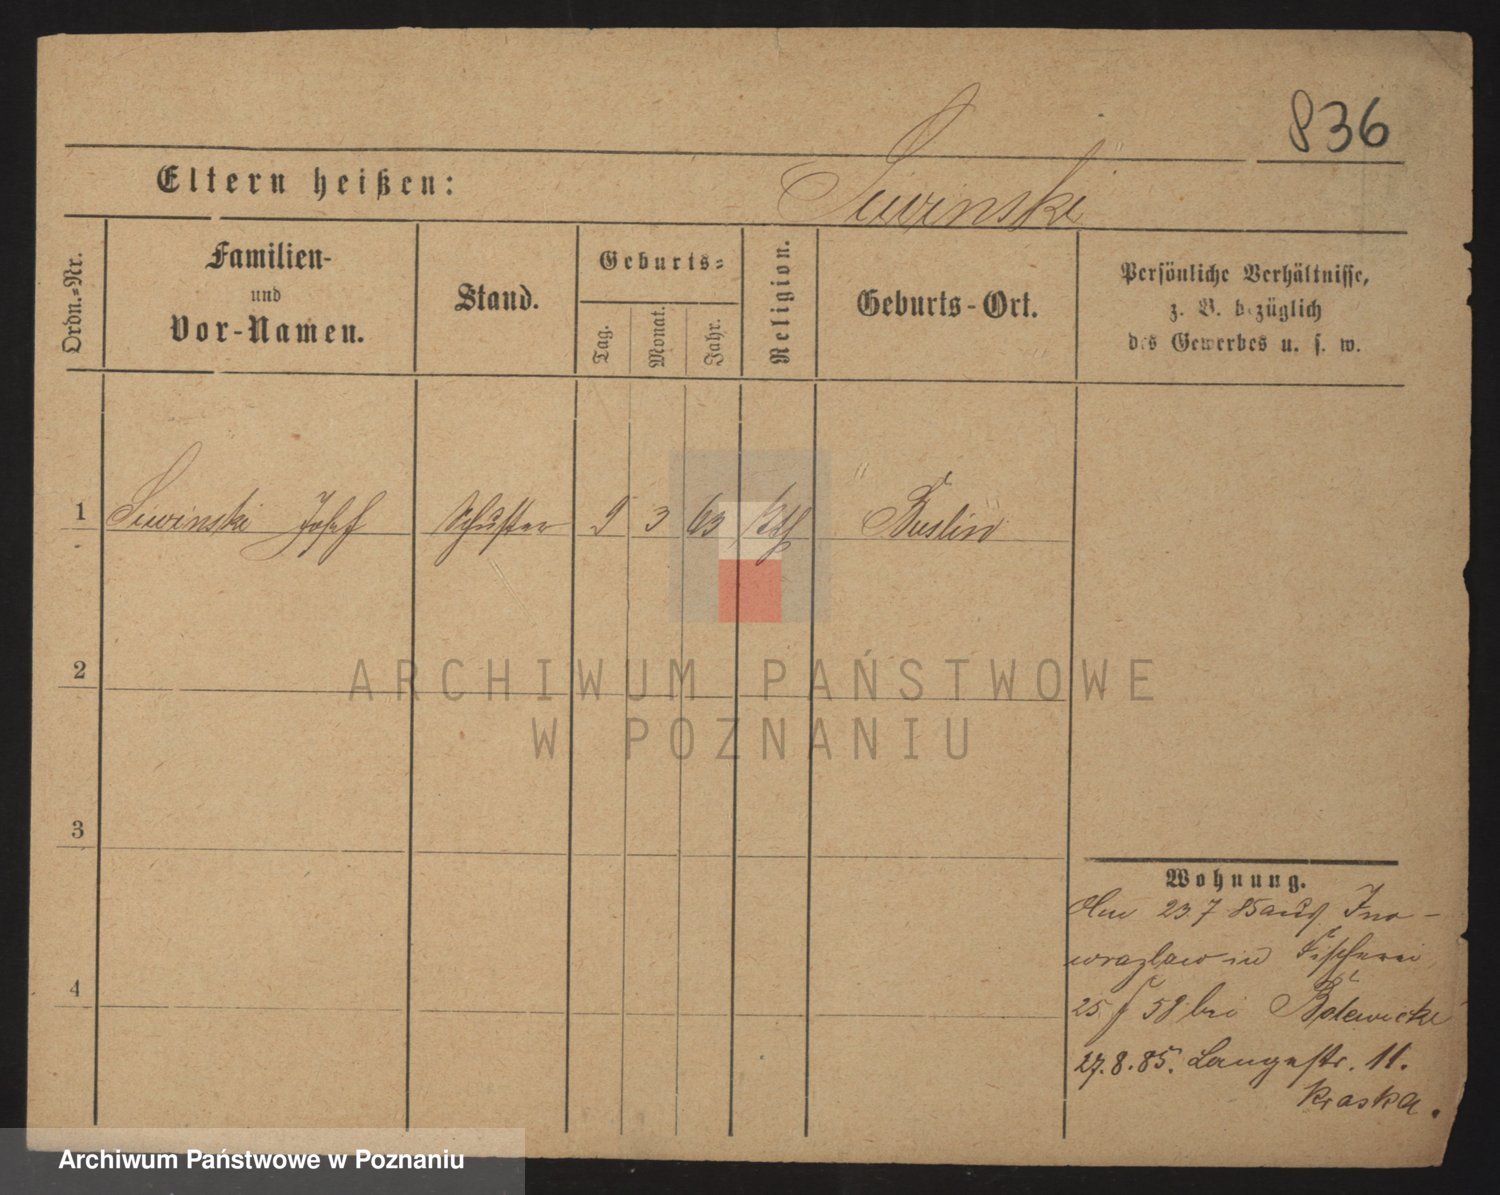 836
Eltern heißen:
Siwinski
Ordn.-Nr.
Familien-
und
Vor-Namen.
Stand.
Geburts-
Tag.
Monat.
Jahr.
Religion.
Geburts-Ort.
Persönliche Verhältnisse,
z. B. bezüglich
des Gewerbes u. s. w.
1 Siwinski Josef Schuster 9 3 63 kth
2
3
4
Wohnung.
Am 23 7 85 aus Ino-
wrazlaw in Fischerei
25 58 bei
27. 8. 85. Langestr. 11.
Kraska.
ARCHIWUM PAŃSTWOWE
W POZNANIU
Archiwum Państwowe w Poznaniu